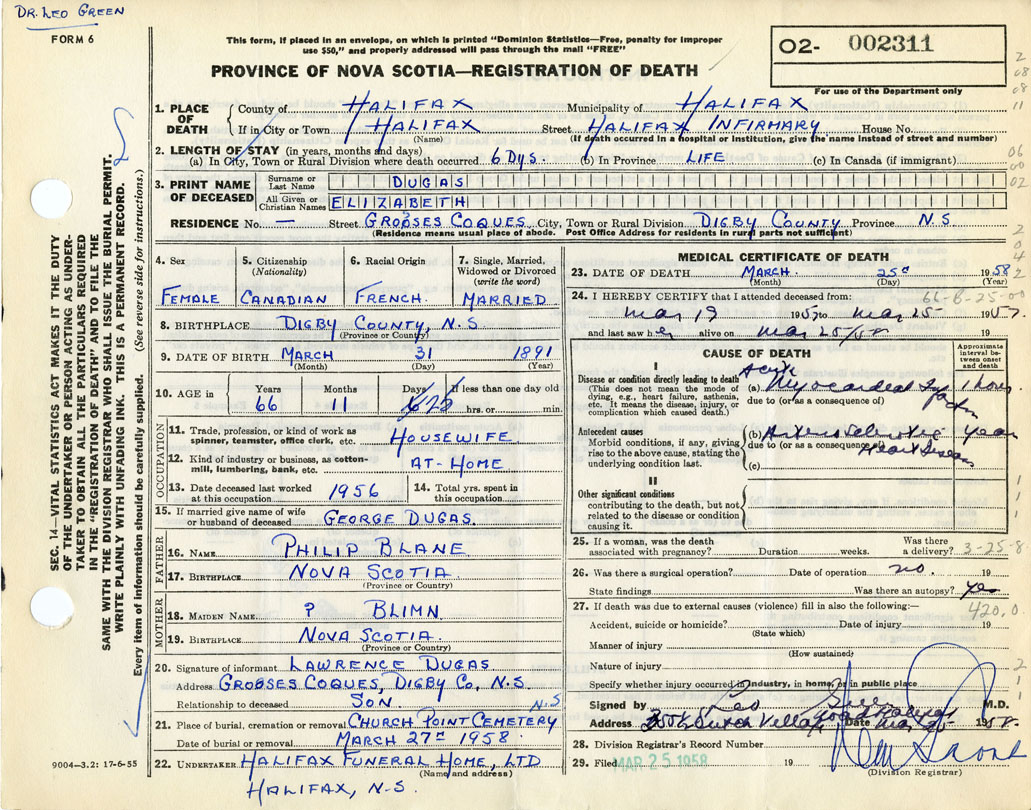 DR. LEO GREEN
FORM 6
This form, if placed in an envelope, on which is printed "Dominion Statistics—Free, penalty for improper
use $50," and properly addressed will pass through the mail "FREE"
PROVINCE OF NOVA SCOTIA—REGISTRATION OF DEATH
02- 002311
For use of the Department only
SEC. 14—VITAL STATISTICS ACT MAKES IT THE DUTY
OF THE UNDERTAKER OR PERSON ACTING AS UNDER-
TAKER TO OBTAIN ALL THE PARTICULARS REQUIRED
IN THE "REGISTRATION OF DEATH" AND TO FILE THE
SAME WITH THE DIVISION REGISTRAR WHO SHALL ISSUE THE BURIAL PERMIT.
WRITE PLAINLY WITH UNFADING INK. THIS IS A PERMANENT RECORD.
Every item of information should be carefully supplied. (See reverse side for instructions.)
1. PLACE OF DEATH
County of HALIFAX Municipality of HALIFAX
If in City or Town HALIFAX Street HALIFAX INFIRMARY House No.
(Name) (If death occurred in a hospital or institution, give the name instead of street and number)
2. LENGTH OF STAY (in years, months and days)
(a) In City, Town or Rural Division where death occurred 6 DYS. (b) In Province LIFE (c) In Canada (if immigrant)
3. PRINT NAME OF DECEASED
Surname or Last Name DUGAS
All Given or Christian Names ELIZABETH
RESIDENCE No. — Street GROBSES COQUES City, Town or Rural Division DIGBY COUNTY Province N.S.
(Residence means usual place of abode. Post Office Address for residents in rural parts not sufficient)
4. Sex FEMALE
5. Citizenship (Nationality) CANADIAN
6. Racial Origin FRENCH.
7. Single, Married, Widowed or Divorced (write the word) MARRIED
8. BIRTHPLACE DIGBY COUNTY, N.S
(Province or Country)
9. DATE OF BIRTH MARCH 31 1891
(Month) (Day) (Year)
10. AGE in Years 66 Months 11 Days 25 If less than one day old hrs. or min.
OCCUPATION
11. Trade, profession, or kind of work as
spinner, teamster, office clerk, etc. HOUSEWIFE
12. Kind of industry or business, as cotton-
mill, lumbering, bank, etc. AT-HOME
13. Date deceased last worked
at this occupation 1956
14. Total yrs. spent in
this occupation
15. If married give name of wife
or husband of deceased GEORGE DUGAS.
FATHER
16. NAME PHILIP BLANE
17. BIRTHPLACE NOVA SCOTIA
(Province or Country)
MOTHER
18. MAIDEN NAME ? BLIMN
19. BIRTHPLACE NOVA SCOTIA.
(Province or Country)
20. Signature of informant LAWRENCE DUGAS
Address GROBSES COQUES, DIGBY CO, N.S.
Relationship to deceased SON. N.S
21. Place of burial, cremation or removal CHURCH POINT CEMETERY
Date of burial or removal MARCH 27TH 1958
22. UNDERTAKER HALIFAX FUNERAL HOME, LTD
(Name and address)
HALIFAX, N.S.
9004-3.2: 17-6-55
MEDICAL CERTIFICATE OF DEATH
23. DATE OF DEATH MARCH. 25 1958
(Month) (Day) (Year)
24. I HEREBY CERTIFY that I attended deceased from: 66-B-25-00
Mar 19 195 to Mar 25 195
and last saw her alive on Mar 25/58 19
CAUSE OF DEATH
Approximate interval between onset and death
I
Disease or condition directly leading to death
(This does not mean the mode of
dying, e.g., heart failure, asthenia,
etc. It means the disease, injury, or
complication which caused death.)
(a) Acute Myocardial Infarction 1 hour
due to (or as a consequence of)
Antecedent causes
Morbid conditions, if any, giving
rise to the above cause, stating the
underlying condition last.
(b) Arteriosclerotic Heart Disease year
due to (or as a consequence of)
(c)
II
Other significant conditions
contributing to the death, but not
related to the disease or condition
causing it.
25. If a woman, was the death
associated with pregnancy? Duration weeks. Was there
a delivery? 3-25-8
26. Was there a surgical operation? Date of operation no. 19
State findings Was there an autopsy? yes
27. If death was due to external causes (violence) fill in also the following:— 420.0
Accident, suicide or homicide? Date of injury 19
(State which)
Manner of injury
(How sustained)
Nature of injury
Specify whether injury occurred in industry, in home, or in public place
Signed by Leo Green M.D.
Address Dutch Village Date Mar 25 1958.
28. Division Registrar's Record Number
29. Filed MAR 25 1958 19
(Division Registrar)